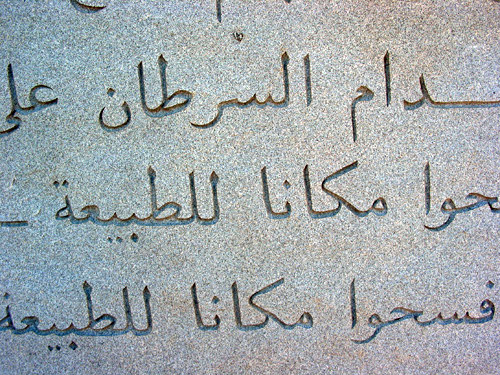 ـدام السرطان على
ـحوا مكانا للطبيعة ـ
فسحوا مكانا للطبيعة